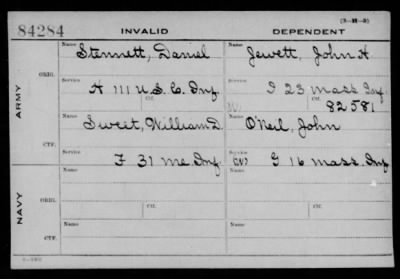 (3-H-5)
84284 INVALID DEPENDENT
Name Stennett, Daniel Name Jewett, John H
ORIG.
Service Service
A 111 U.S.C. Inf. I 23 Mass Inf
Ctf. Ctf. 82581
ARMY
Name Sweet, William D. Name O'Neil, John
CTF.
Service Service
F 31 Me Inf. G 16 Mass. Inf
Name Name
ORIG.
Ctf. Ctf.
NAVY
Name Name
CTF.